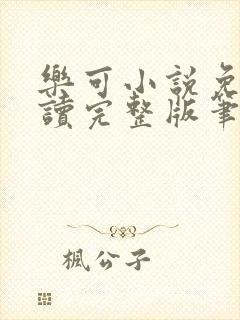 樂可小說免
讀完整版筆
楓公子